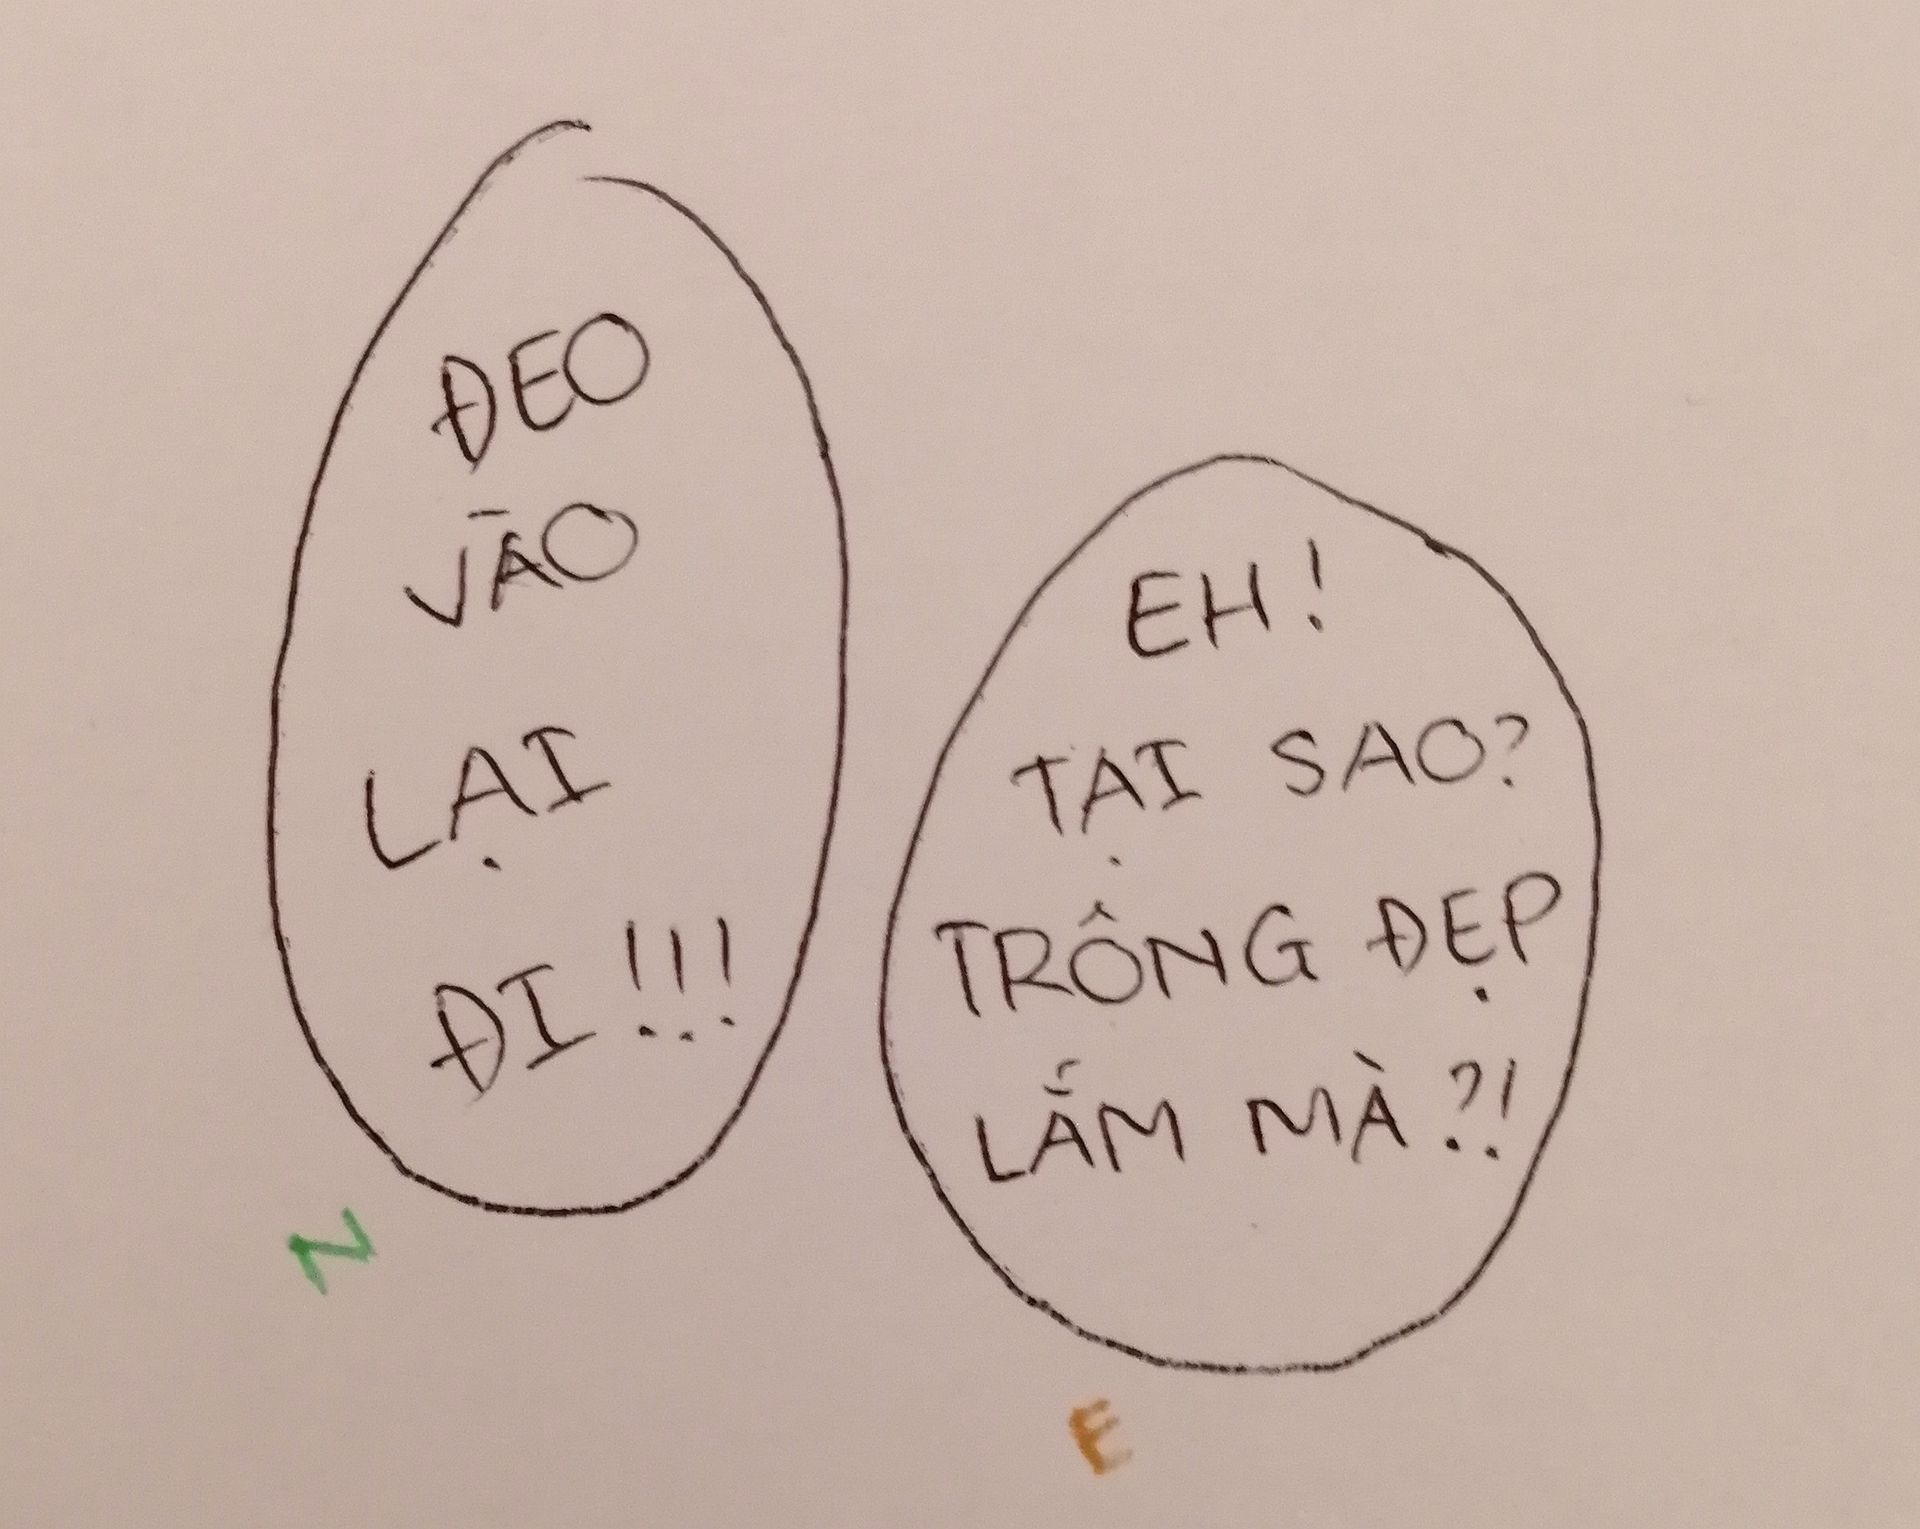 ĐEO
VÀO
LẠI
ĐI!!!
N
EH!
TẠI SAO?
TRÔNG ĐẸP
LẮM MÀ?!
E